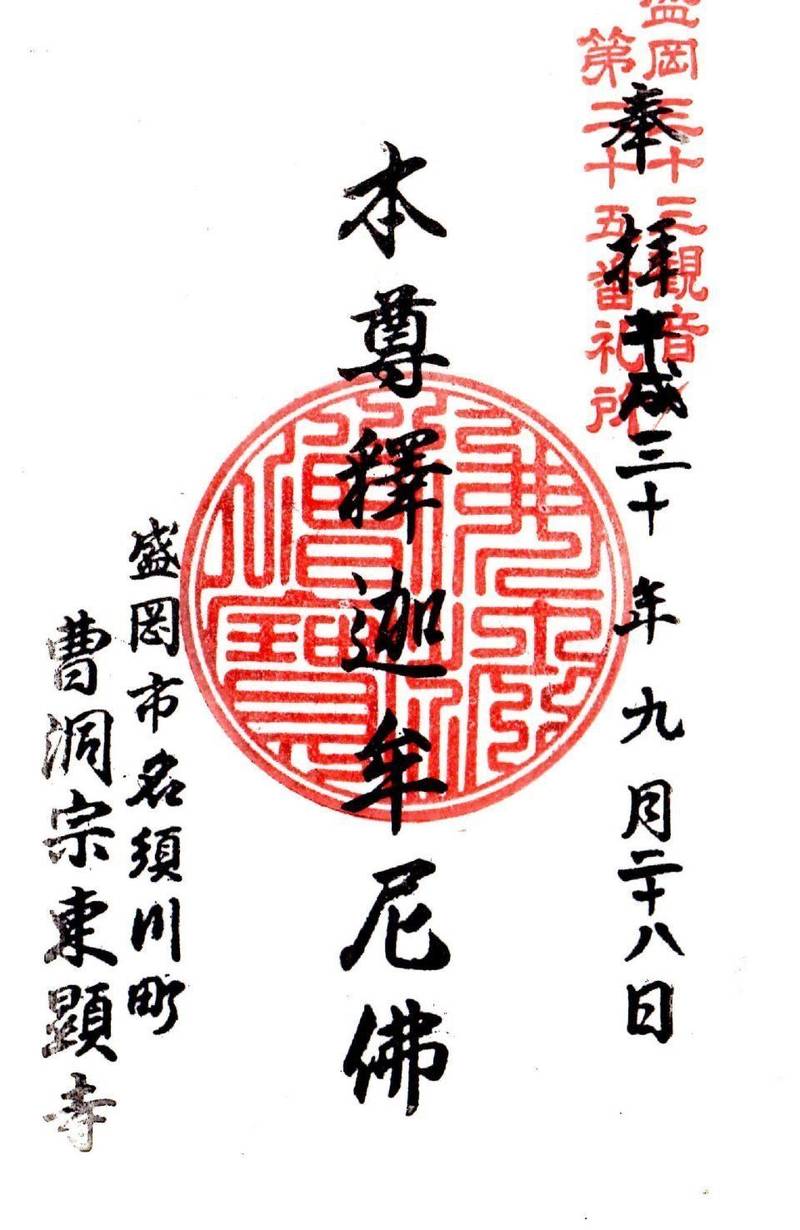 盛岡三十三観音
第二十五番礼所
奉拝 平成三十年九月二十八日
本尊釋迦牟尼佛
佛法僧寳
盛岡市名須川町
曹洞宗東顕寺